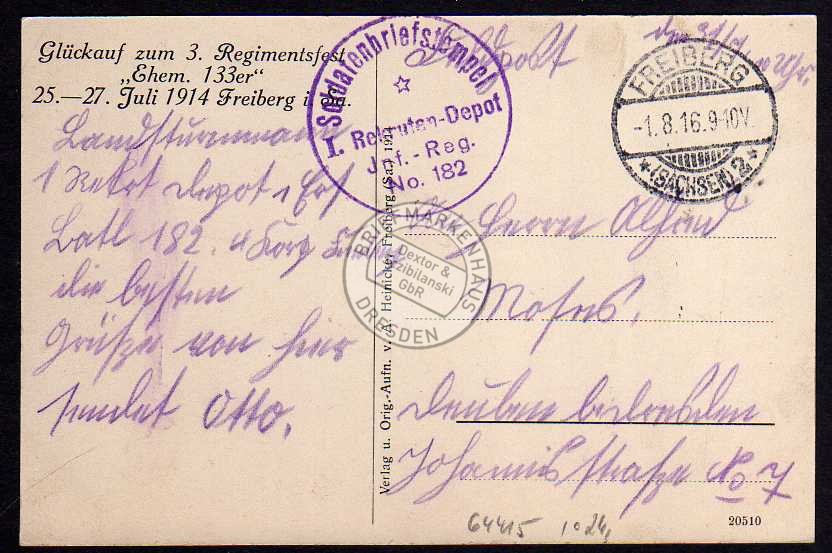 Glückauf zum 3. Regimentsfest
„Ehem. 133er“
25.—27. Juli 1914 Freiberg i. Sa.
Soldatenbriefstempel
I. Rekruten-Depot
Inf.-Reg.
No. 182
Feldpost
Uhr.
FREIBERG
-1.8.16.9-10V.
*(SACHSEN).2*
Landsturmmann
1 Rekrt Depot 1 Ers
Batl 182.
die besten
Grüße von hier
sendet Otto.
Herrn
Moses.
Deuben b. Dresden
Johannisstraße No 7
Verlag u. Orig.-Aufn. v. A. Heinicke, Freiberg (Sa.) 1914
BRIEFMARKENHAUS
Dextor &
Przibilanski
GbR
DRESDEN
64415
20510